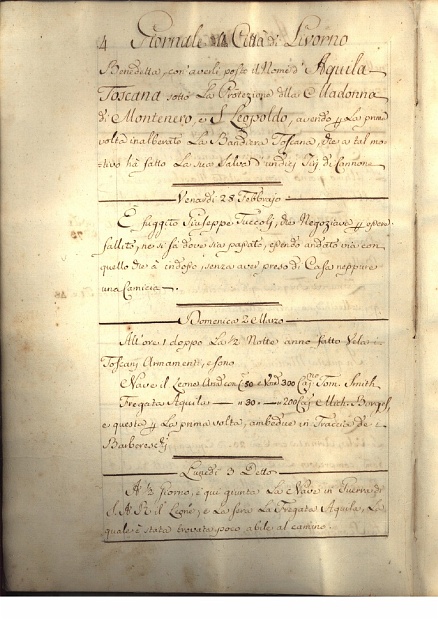 4 Giornale della Città di Livorno
Benedetta, con' averli posto il Nome d' Aquila
Toscana sotto La Protezione della Madonna
di Montenero, e S. Leopoldo, avendo p La prima
volta inalberato La Bandiera Toscana, che a tal mo-
tivo hà fatto La sua Salva d' undici Tiri di Cannone
Venardi 28 Febbrajo
È fuggito Giuseppe Tuccoli, che Negoziava p essere
fallito, ne si sà dove sia passato, essendo andato via con
quello che à indosso, senza aver preso di Casa neppure
una Camicia.
Domenica 2 Marzo
All'ore 1 doppo La 1/2 Notte anno fatto Vela i
Toscani Armamenti, e sono
Nave il Leone And con 50 e 300 Tom. Smith
Fregata Aquila — " 30 " 200
e questa p La prima volta, ambedue in Traccia de i
Barbareschi
Lunedì 3 Detto
A 1/2 giorno, è quì giunta La Nave in Guerra di
S. A. R. il Leone, e La sera La Fregata Aquila, La
quale è stata trovata poco abile al camino.